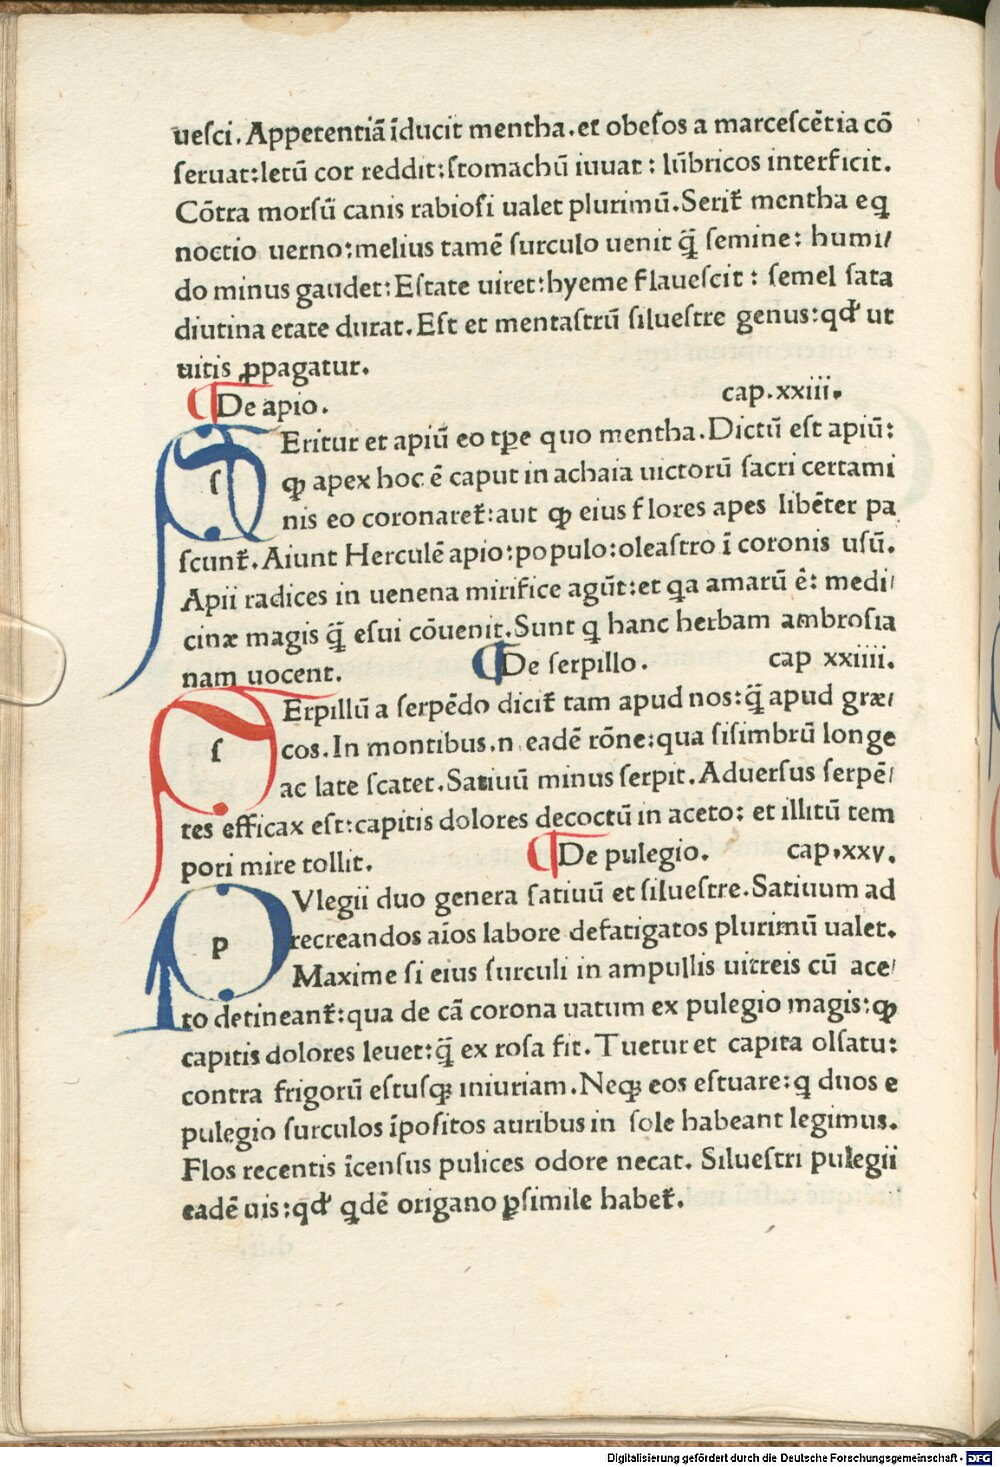 ueſci. Appetentiā īducit mentha. et obeſos a marceſcētia cō
ſeruat: letū cor reddit: ſtomachū iuuat: lūbricos interficit.
Cōtra morſū canis rabioſi ualet plurimū. Serit̃ mentha eq
noctio uerno: melius tamē ſurculo uenit q̄ ſemine: humi/
do minus gaudet: Eſtate uiret: hyeme flaueſcit: ſemel ſata
diutina etate durat. Eſt et mentaſtrū ſilueſtre genus: qđ ut
uitis ꝓpagatur.
cap. xxiii.
¶De apio.
sEritur et apiū eo tꝑe quo mentha. Dictū eſt apiū:
ꝙ apex hoc ē caput in achaia uictorū ſacri certami
nis eo coronaret̃: aut ꝙ eius flores apes libēter pa
ſcunt̃. Aiunt Herculē apio: populo: oleaſtro ī coronis uſū.
Apii radices in uenena mirifice agūt: et qa amarū ē: medi/
cinæ magis q̄ eſui cōuenit. Sunt q hanc herbam ambroſia
nam uocent. ¶De ſerpillo. cap xxiiii.
ſErpillū a ſerpēdo dicit̃ tam apud nos: q̄ apud græ/
cos. In montibus .n. eadē rōne: qua ſiſimbrū longe
ac late ſcatet. Satiuū minus ſerpit. Aduerſus ſerpē/
tes efficax eſt: capitis dolores decoctū in aceto: et illitū tem
pori mire tollit. ¶De pulegio. cap. xxv.
pVlegii duo genera ſatiuū et ſilueſtre. Satiuum ad
recreandos aīos labore defatigatos plurimū ualet.
Maxime ſi eius ſurculi in ampullis uitreis cū ace/
to detineant̃: qua de cā corona uatum ex pulegio magis: ꝙ
capitis dolores leuet: q̄ ex roſa fit. Tuetur et capita olfatu:
contra frigorū eſtuſqꝫ iniuriam. Neqꝫ eos eſtuare: q duos e
pulegio ſurculos īpoſitos auribus in ſole habeant legimus.
Flos recentis īcenſus pulices odore necat. Silueſtri pulegii
eadē uis: qđ qdē origano ꝑſimile habet̃.
Digitalisierung gefördert durch die Deutsche Forschungsgemeinschaft - DFG